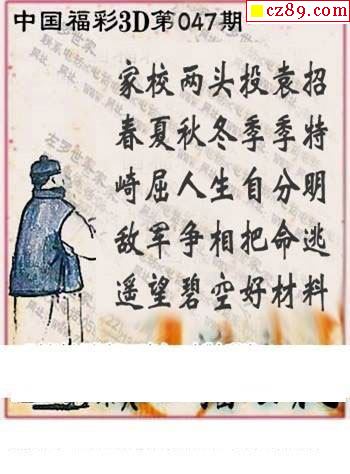 中国福彩3D第047期
cz89.com
家校两头投袁招
春夏秋冬季季特
崎屈人生自分明
敌军争相把命逃
遥望碧空好材料